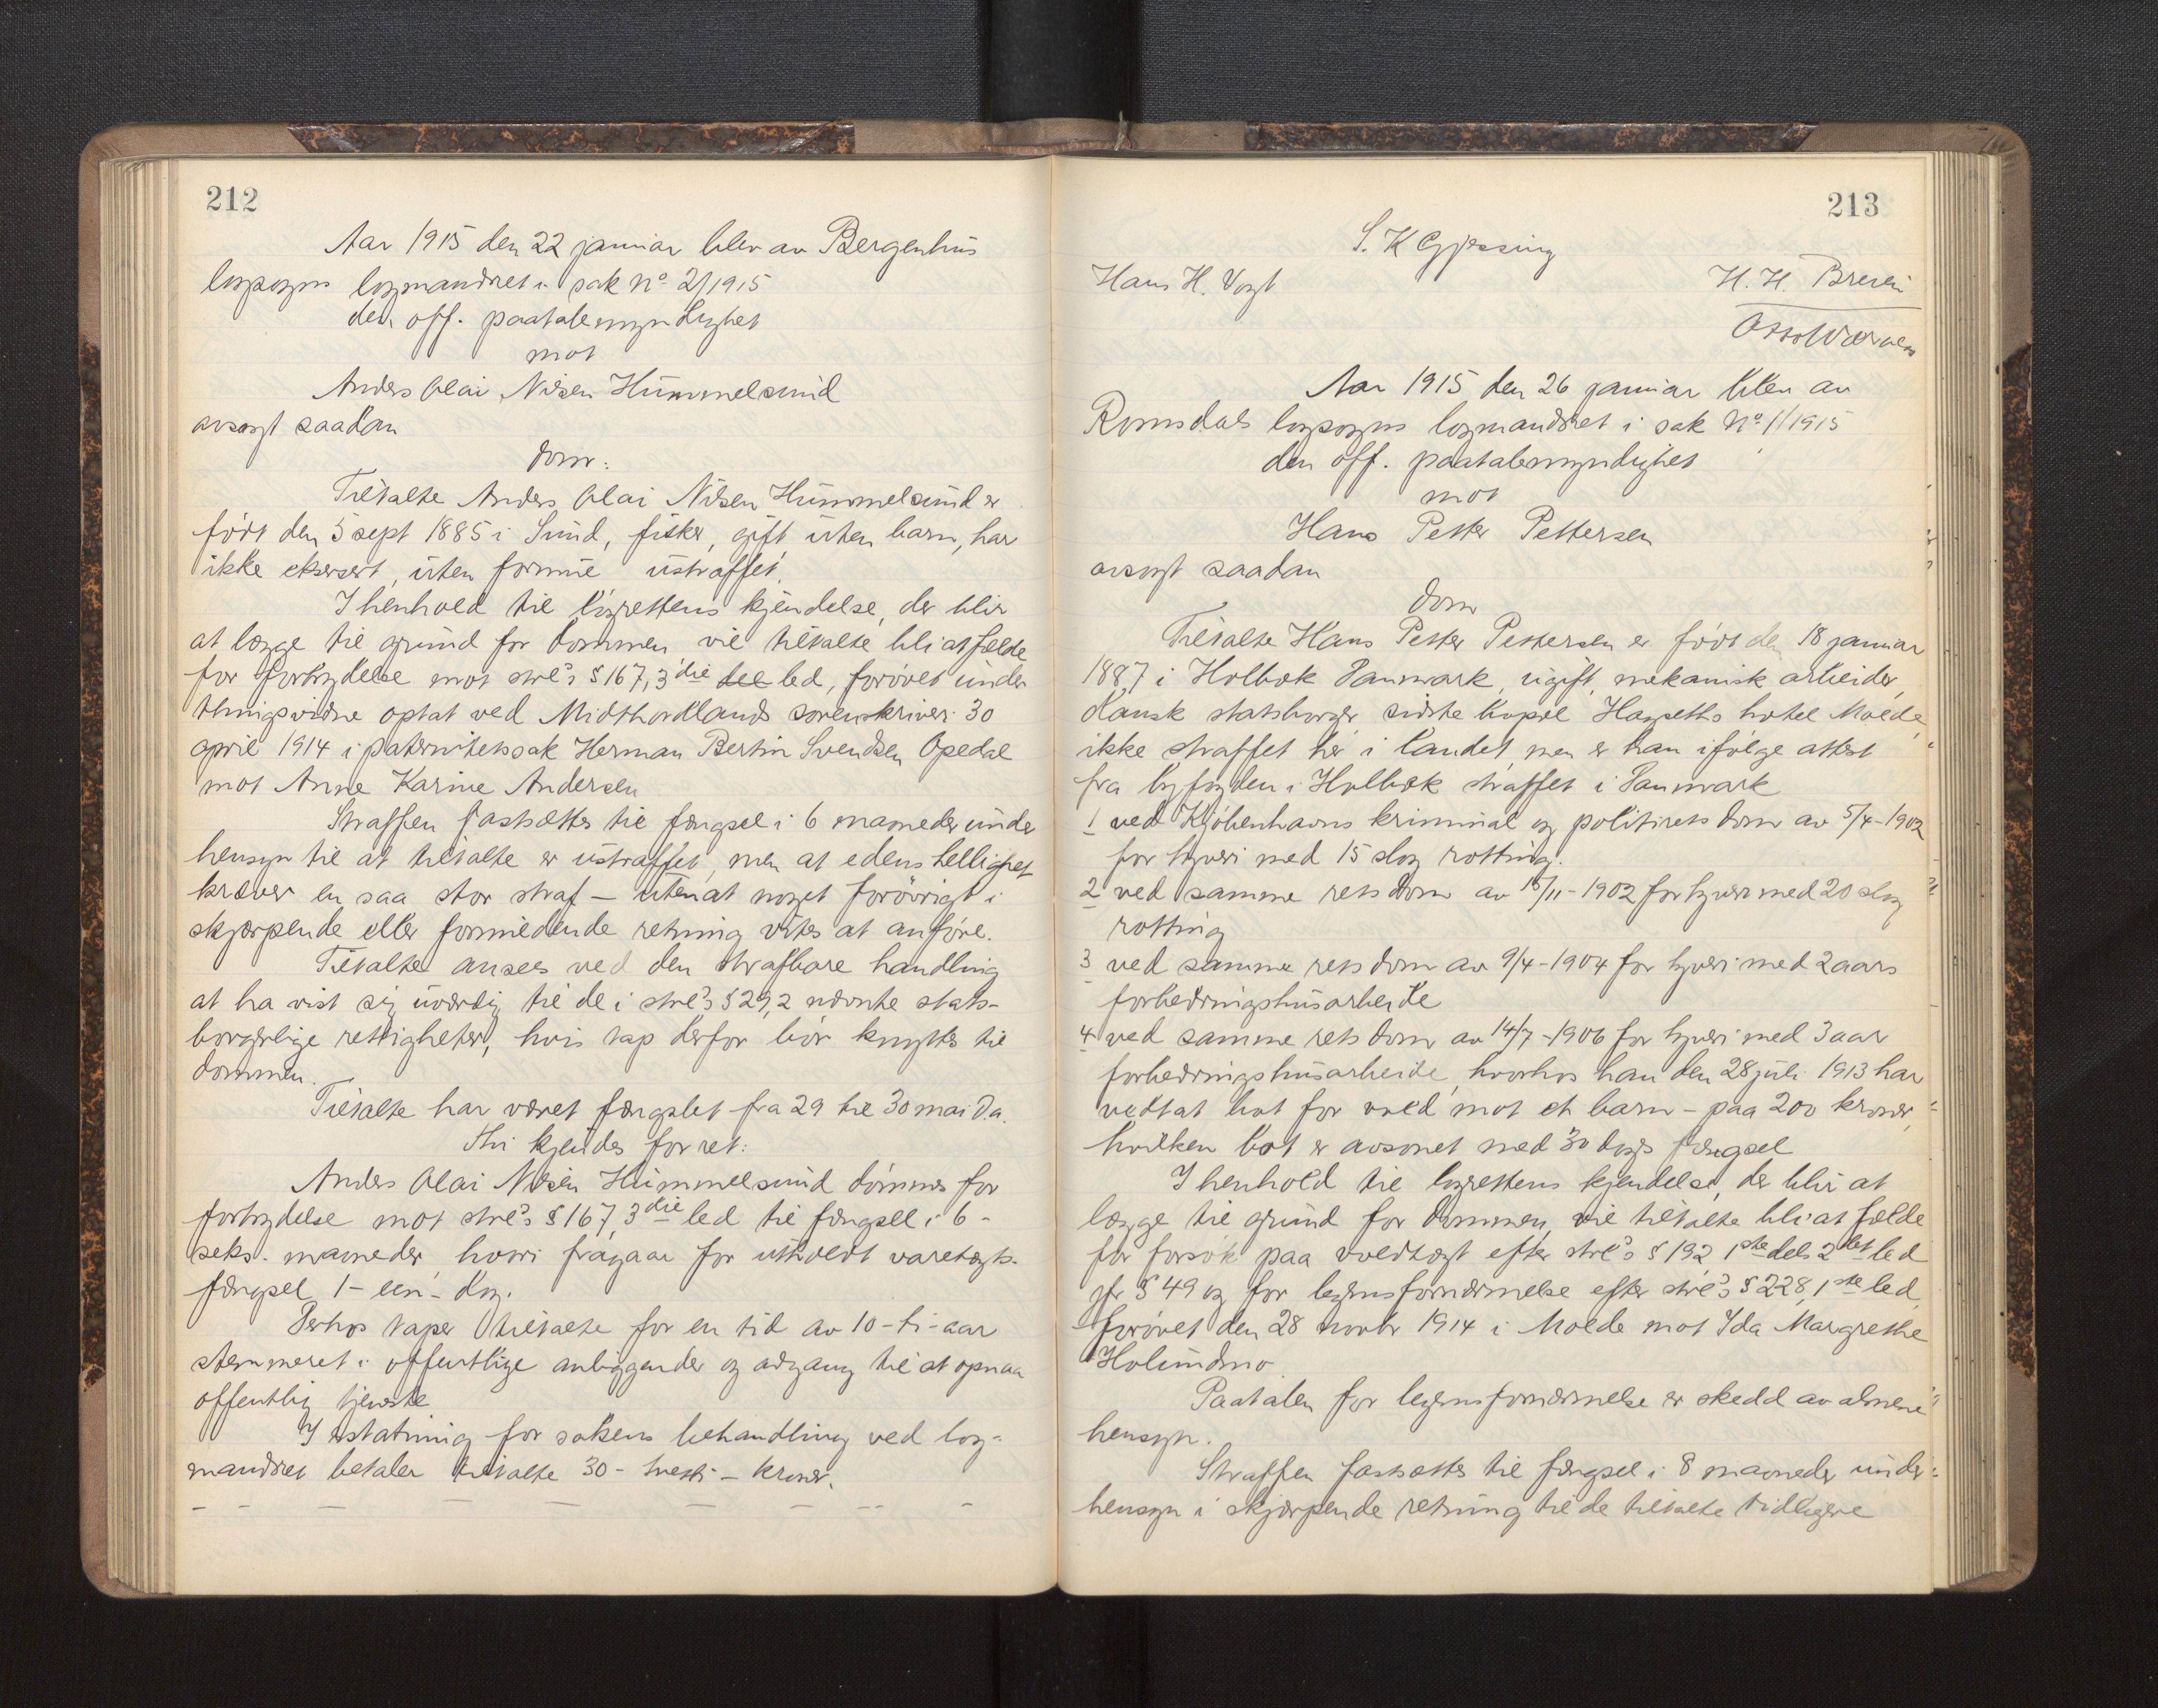 212
Aar 1915 den 22 januar blev av Bergenhus
lagsogns lagmandsret i sak No 2/1915
den off. paatalemyndighet
mot
Anders Olai Nilsen Hummelsund
avsagt saadan
dom:
Tiltalte Anders Olai Nilsen Hummelsund er
født den 5 sept 1885 i Sund, fisker, gift, uten barn, har
ikke eksersert, uten formue ustraffet.
I henhold til lagrettens kjendelse, der blir
at lægge til grund for dommen vil tiltalte bli at fælde
for forbrydelse mot strl's § 167, 3die led, forøvet under
thingsvidne optat ved Midthordlands sorenskriveri 30
april 1914 i paternitetssak Herman Bertin Svendsen Opedal
mot Anne Karine Andersen
Straffen fastsættes til fængsel i 6 maaneder under
hensyn til at tiltalte er ustraffet, men at edens hellighet
kræver en saa stor straf – uten at noget forøvrigt i
skjærpende eller formildende retning vites at anføre.
Tiltalte ansees ved den strafbare handling
at ha vist sig uværdig til de i strl's § 29,2 nævnte stats-
borgerlige rettigheter, hvis tap derfor bør knyttes til
dommen.
Tiltalte har været fængslet fra 29 til 30 mai d.a.
Thi kjendes for ret:
Anders Olai Nilsen Hummelsund dømmes for
forbrydelse mot strl's § 167, 3die led til fængsel i 6-
seks- maaneder, hvori fragaar for utholdt varetægts-
fængsel 1 – een – dag.
Derhos taper tiltalte for en tid av 10 – ti – aar
stemmeret i offentlige anliggender og adgang til at opnaa
offentlig tjeneste
I erstatning for sakens behandling ved lag-
mandsret betaler tiltalte 30 – tretti – kroner.
213
S. K Gjessing
Hans H. Vogt
H. H. Brevin
Aar 1915 den 26 januar blev av
Romsdals lagsogns lagmandsret i sak No 1/1915
den off. paatalemyndighet
mot
Hans Petter Pettersen
avsagt saadan
dom
Tiltalte Hans Petter Pettersen er født den 18 januar
1887 i Holbæk Danmark, ugift, mekanisk arbeider,
dansk statsborger sidste bopæl Hagseths hotel Molde,
ikke straffet her i landet, men er han ifølge attest
fra byfogden i Holbæk straffet i Danmark
1 ved Kjøbenhavns kriminal og politirets dom av 5/4-1902
for tyveri med 15 slag rotting.
2 ved samme rets dom av 15/11-1902 for tyveri med 20 slag
rotting
3 ved samme rets dom av 9/4-1904 for tyveri med 2 aars
forbedringshusarbeide
4 ved samme rets dom av 14/7-1906 for tyveri med 3 aar
forbedringshusarbeide, hvorhos han den 28 juli 1913 har
vedtat bot for vold mot et barn – paa 200 kroner,
hvilken bot er avsonet med 30 dags fængsel
I henhold til lagrettens kjendelse, der blir at
lægge til grund for dommen, vil tiltalte bli at fælde
for forsøk paa voldtægt efter strl's § 192, 1ste dels 2det led
jfr § 49 og for legemsfornærmelse efter strl's § 228, 1ste led,
forøvet den 28 novbr 1914 i Molde mot Ida Margrethe
Holundmo
Paatalen for legemsfornærmelse er skedd av almene
hensyn.
Straffen fastsættes til fængsel i 8 maaneder under
hensyn i skjærpende retning til de tiltalte tidligere